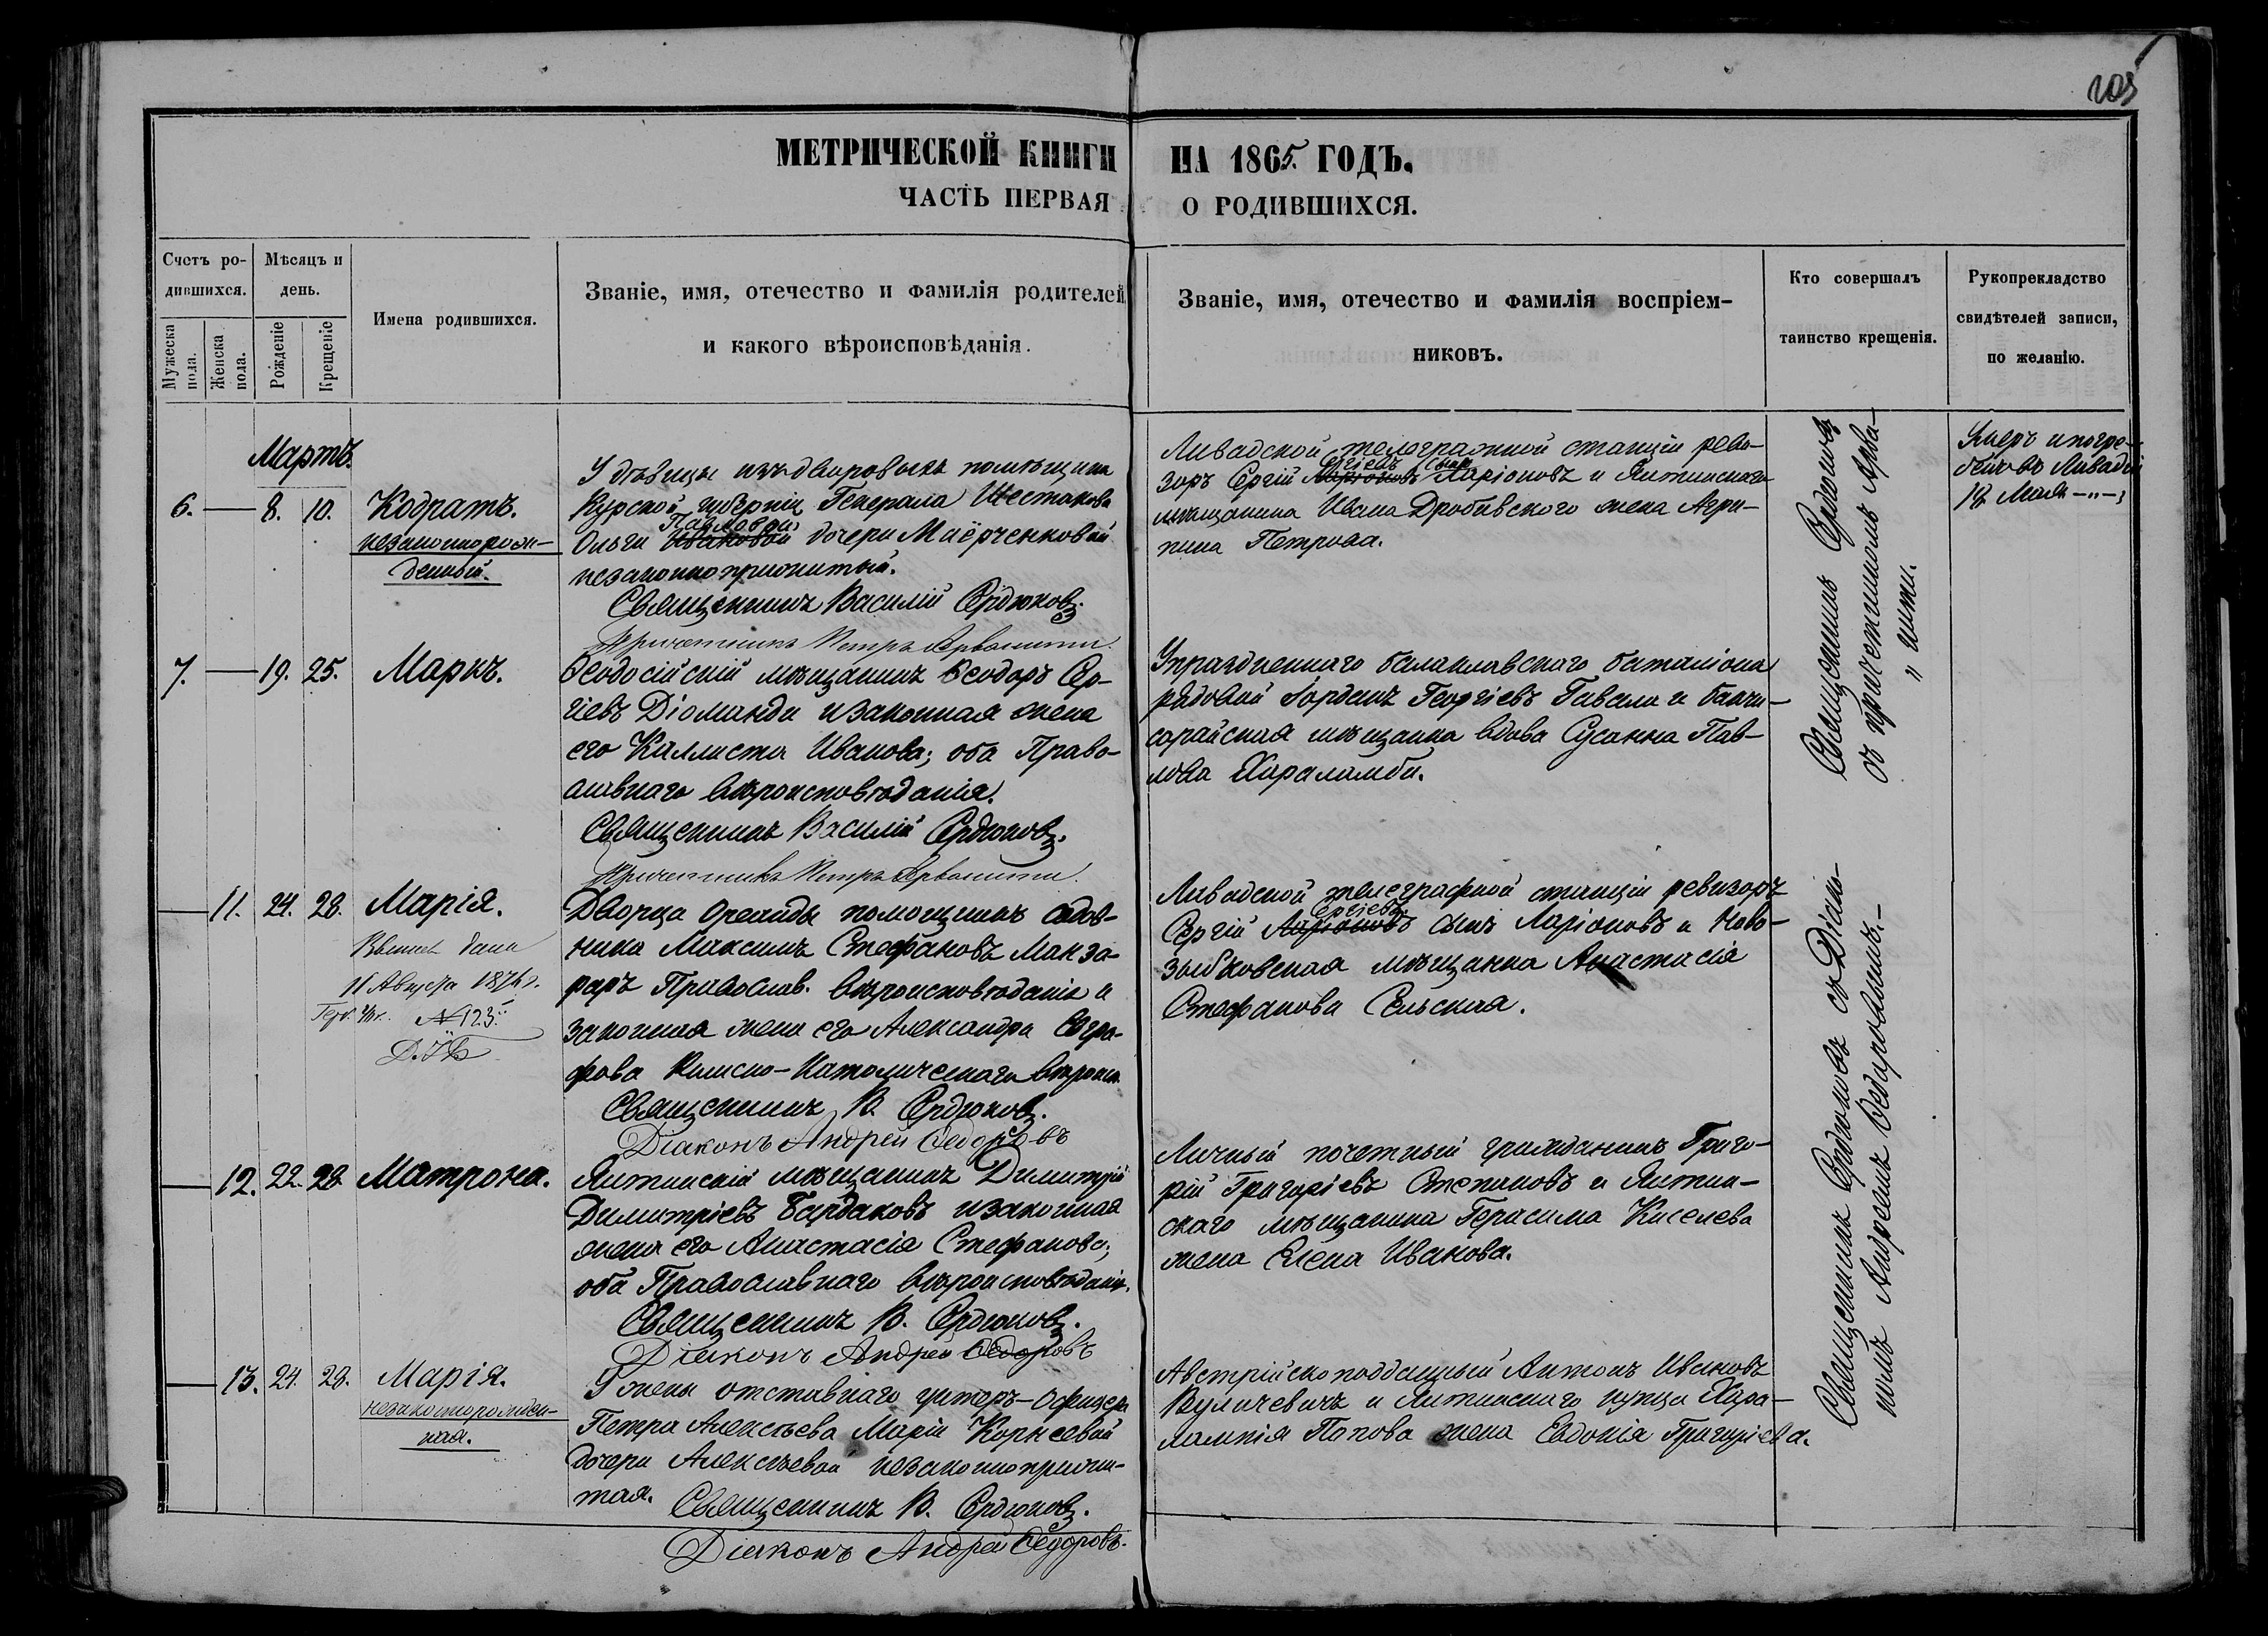 105
МЕТРИЧЕСКОЙ КНИГИ НА 1865. ГОДЪ.
ЧАСТЬ ПЕРВАЯ О РОДИВШИХСЯ.
Счетъ ро-
дившихся.
Мужеска пола.
Женска пола.
Мѣсяцъ и
день.
Рожденіе
Крещеніе
Имена родившихся.
Званіе, имя, отечество и фамилія родителей
и какого вѣроисповѣданія.
Званіе, имя, отечество и фамилія воспріем-
никовъ.
Кто совершалъ
таинство крещенія.
Рукоприкладство
свидѣтелей записи,
по желанію.
Мартъ.
6. — 8. 10.
Кодратъ.
незаконнорож-
денный.
У дѣвицы изъ дворовыхъ помѣщика
Курской губерніи Генерала Шестакова
Павловой
Ольги Ивановой дочери Миёрченковой
незаконноприжитый.
Священникъ Василій Сердюковъ.
Причетникъ Петръ Арванити.
Ливадской телеграфной станціи реви-
Сергіевъ сынъ
зоръ Сергій Ларіоновъ Ларіоновъ и Ялтинскаго
мѣщанина Ивана Дробивского жена Агри-
пина Петрова.
Священникъ Сердюковъ
съ причетникомъ Арва-
„нити.
Умеръ и погре-
бенъ въ Ливадіи
18 Мая —„—
7. — 19. 25.
Маркъ.
Ѳеодосійскій мѣщанинъ Ѳеодоръ Сер-
гіевъ Діоманди и законная жена
его Каллиста Иванова; оба Право-
славнаго вѣроисповѣданія.
Священникъ Василій Сердюковъ.
Причетникъ Петръ Арванити.
Упраздненнаго балаклавскаго баталіона
рядовой Іорданъ Георгіевъ Гавала и бахчи-
сарайская мѣщанка вдова Сусанна Пав-
лова Хараламби.
— 11. 24. 28.
Марія.
дана
11 Августа 1874 г.
№ 123.
Дворца Ореанды помощникъ садов-
ника Максимъ Стефановъ Манза-
раръ Православ. вѣроисповѣданія и
законная жена его Александра Евгра-
фова Римско-Католическаго вѣроисп.
Священникъ В. Сердюковъ.
Діаконъ Андрей Ѳедоровъ
Ливадской телеграфной станціи ревизоръ
Сергіевъ
Сергій Ларіоновъ сынъ Ларіоновъ и Ново-
зыбковская мѣщанка Анастасія
Стефанова Сельская.
Священникъ Сердюковъ съ Діако-
номъ Андреемъ Ѳедоровымъ.—
— 12. 22. 28
Матрона.
Ялтинскій мѣщанинъ Димитрій
Димитріевъ Бардаковъ и законная
жена его Анастасія Стефанова;
оба Православнаго вѣроисповѣданія.
Священникъ В. Сердюковъ.
Діаконъ Андрей Ѳедоровъ
Личный почетный гражданинъ Григо-
рій Григоріевъ Степановъ и Ялтин-
скаго мѣщанина Герасима Киселева
жена Елена Иванова.
— 13. 24. 28.
Марія.
незаконнорожден-
ная.
У жены отставнаго унтеръ-офицера
Петра Алексѣева Маріи Корнеевой
дочери Алексѣевой незаконноприжи-
тая.
Священникъ В. Сердюковъ.
Діаконъ Андрей Ѳедоровъ.
Австрійскоподданный Антонъ Ивановъ
Вуличевичъ и Ялтинскаго купца Хара-
лампія Попова жена Евдокія Григоріева.